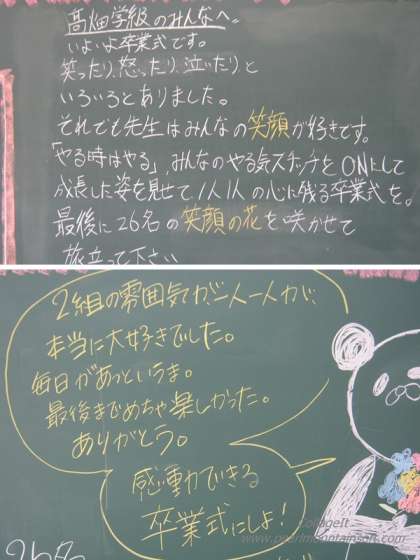 高畑学級のみんなへ。
いよいよ卒業式です。
笑ったり、怒ったり、泣いたりと
いろいろとありました。
それでも先生はみんなの笑顔が好きです。
「やる時はやる」、みんなのやる気スイッチをONにして
成長した姿を見せて、1人1人の心に残る卒業式を。
最後に26名の笑顔の花を咲かせて
旅立って下さい
2組の雰囲気が、一人一人が、
本当に大好きでした。
毎日があっという間。
最後までめちゃ楽しかった。
ありがとう。
感動できる
卒業式にしよ!
26名
CollageIt